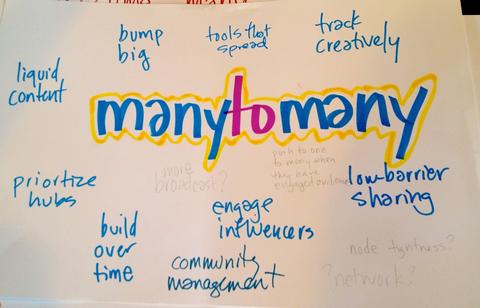 bump
big
tools that
spread
track
creatively
liquid
content
manytomany
push to one
to many when
they have
engaged audience
more
broadcast?
prioritize
hubs
low barrier
sharing
engage
influencers
build
over
time
node tightness?
community
management
?network?